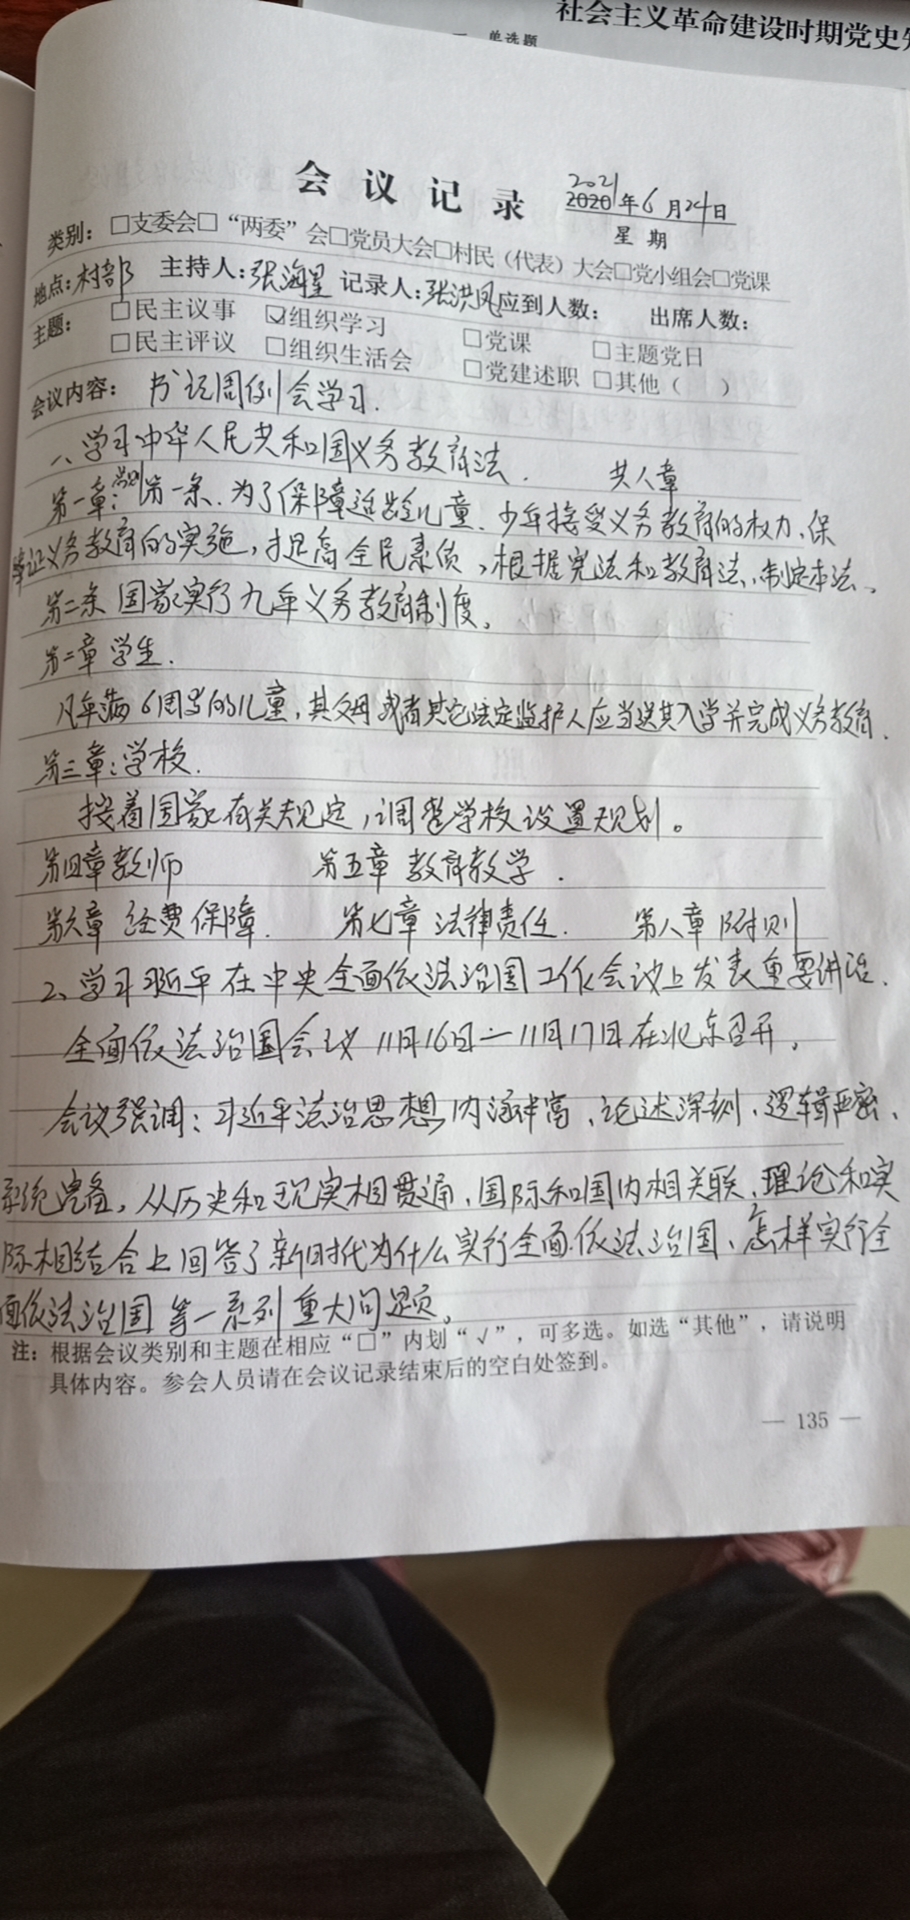 社会主义革命建设时期党史
一、单选题
会 议 记 录
2021
2020年6月24日
星 期
类别：□支委会□“两委”会□党员大会□村民（代表）大会□党小组会□党课
地点：村部 主持人：张海星 记录人：张洪凤 应到人数： 出席人数：
主题： □民主议事 ☑组织学习 □党课 □主题党日
□民主评议 □组织生活会 □党建述职 □其他（ ）
会议内容： 书记周例会学习.
一、学习中华人民共和国义务教育法. 共八章
第一章：总则 第一条.为了保障适龄儿童、少年接受义务教育的权力、保
障证义务教育的实施，提高全民素质，根据宪法和教育法、制定本法、
第二条 国家实行九年义务教育制度。
第二章 学生.
凡年满6周岁的儿童，其父母或者其它法定监护人应当送其入学并完成义务教育.
第三章：学校.
按着国家有关规定，调整学校设置规划。
第四章教师 第五章 教育教学.
第六章 经费保障. 第七章 法律责任. 第八章 附则
2、学习习近平在中央全面依法治国工作会议上发表重要讲话.
全面依法治国会议 11月16日—11月17日在北京召开。
会议强调：习近平法治思想内涵丰富、论述深刻、逻辑严密、
系统完备，从历史和现实相贯通、国际和国内相关联、理论和实
际相结合上回答了新时代为什么实行全面依法治国、怎样实行全
面依法治国等一系列重大问题。
注：根据会议类别和主题在相应“□”内划“√”，可多选。如选“其他”，请说明
具体内容。参会人员请在会议记录结束后的空白处签到。
— 135 —